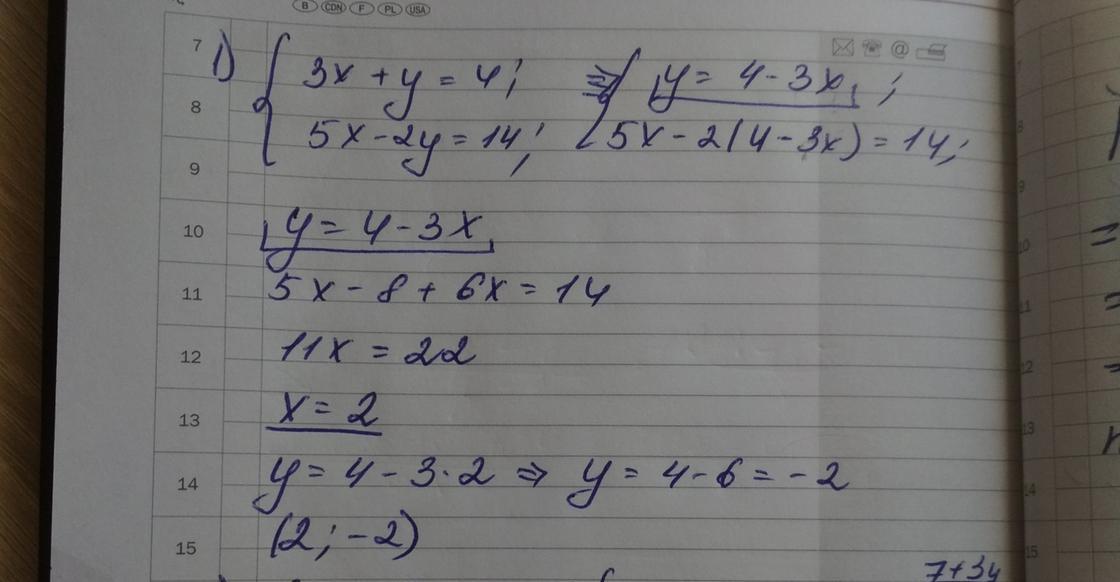 B CDN F PL USA
7
8
9
10
11
12
13
14
15
1) { 3x + y = 4; ⇒ { y = 4 - 3x;
5x - 2y = 14; 5x - 2(4 - 3x) = 14;
y = 4 - 3x
5x - 8 + 6x = 14
11x = 22
x = 2
y = 4 - 3 · 2 ⇒ y = 4 - 6 = -2
(2; -2)
7+34
8
9
10
11
12
13
14
15